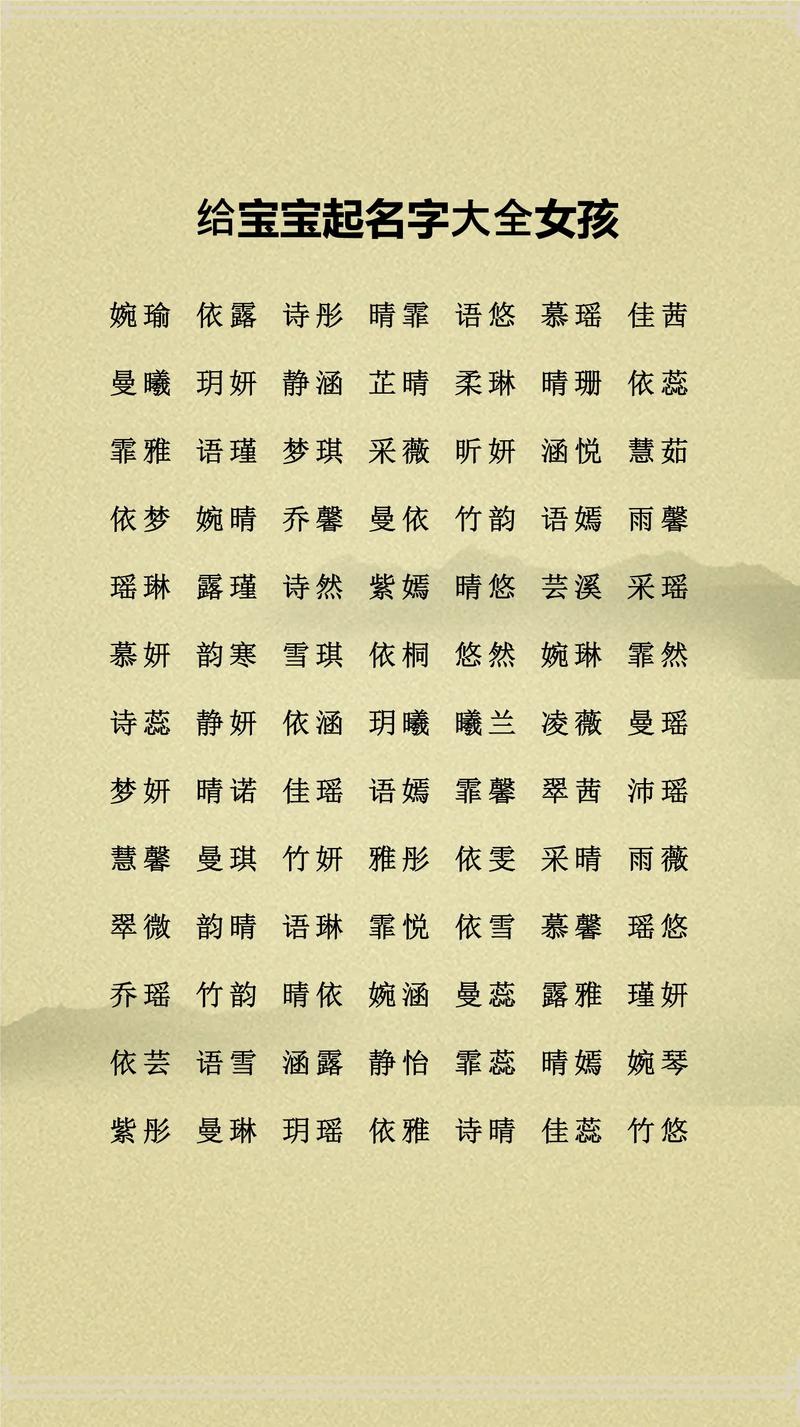 给宝宝起名字大全女孩
婉瑜 依露 诗彤 晴霏 语悠 慕瑶 佳茜
曼曦 玥妍 静涵 芷晴 柔琳 晴珊 依蕊
霏雅 语瑾 梦琪 采薇 昕妍 涵悦 慧茹
依梦 婉晴 乔馨 曼依 竹韵 语嫣 雨馨
瑶琳 露瑾 诗然 紫嫣 晴悠 芸溪 采瑶
慕妍 韵寒 雪琪 依桐 悠然 婉琳 霏然
诗蕊 静妍 依涵 玥曦 曦兰 凌薇 曼瑶
梦妍 晴诺 佳瑶 语嫣 霏馨 翠茜 沛瑶
慧馨 曼琪 竹妍 雅彤 依雯 采晴 雨薇
翠微 韵晴 语琳 霏悦 依雪 慕馨 瑶悠
乔瑶 竹韵 晴依 婉涵 曼蕊 露雅 瑾妍
依芸 语雪 涵露 静怡 霏蕊 晴嫣 婉琴
紫彤 曼琳 玥瑶 依雅 诗晴 佳蕊 竹悠